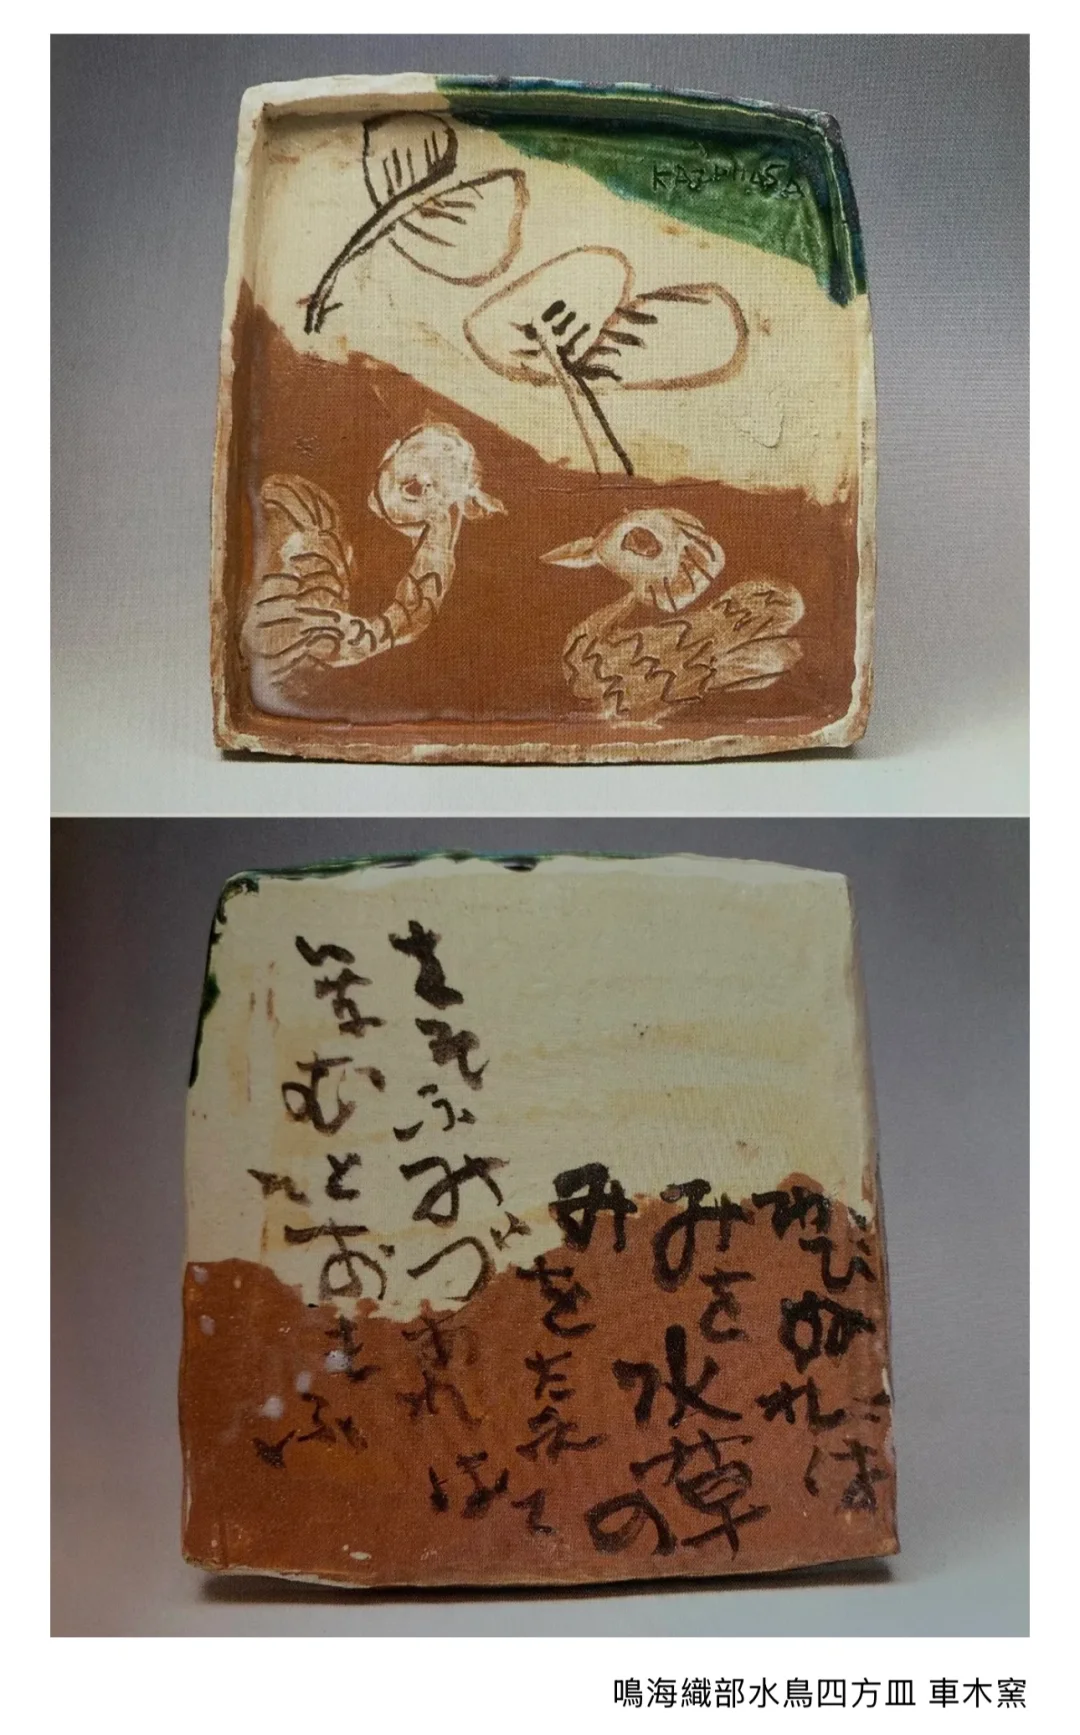 KAZUMASA
わびぬれば
みを水草の
をたえて
さそふみづあれば
いなむと
ふ
鳴海織部水鳥四方皿 車木窯